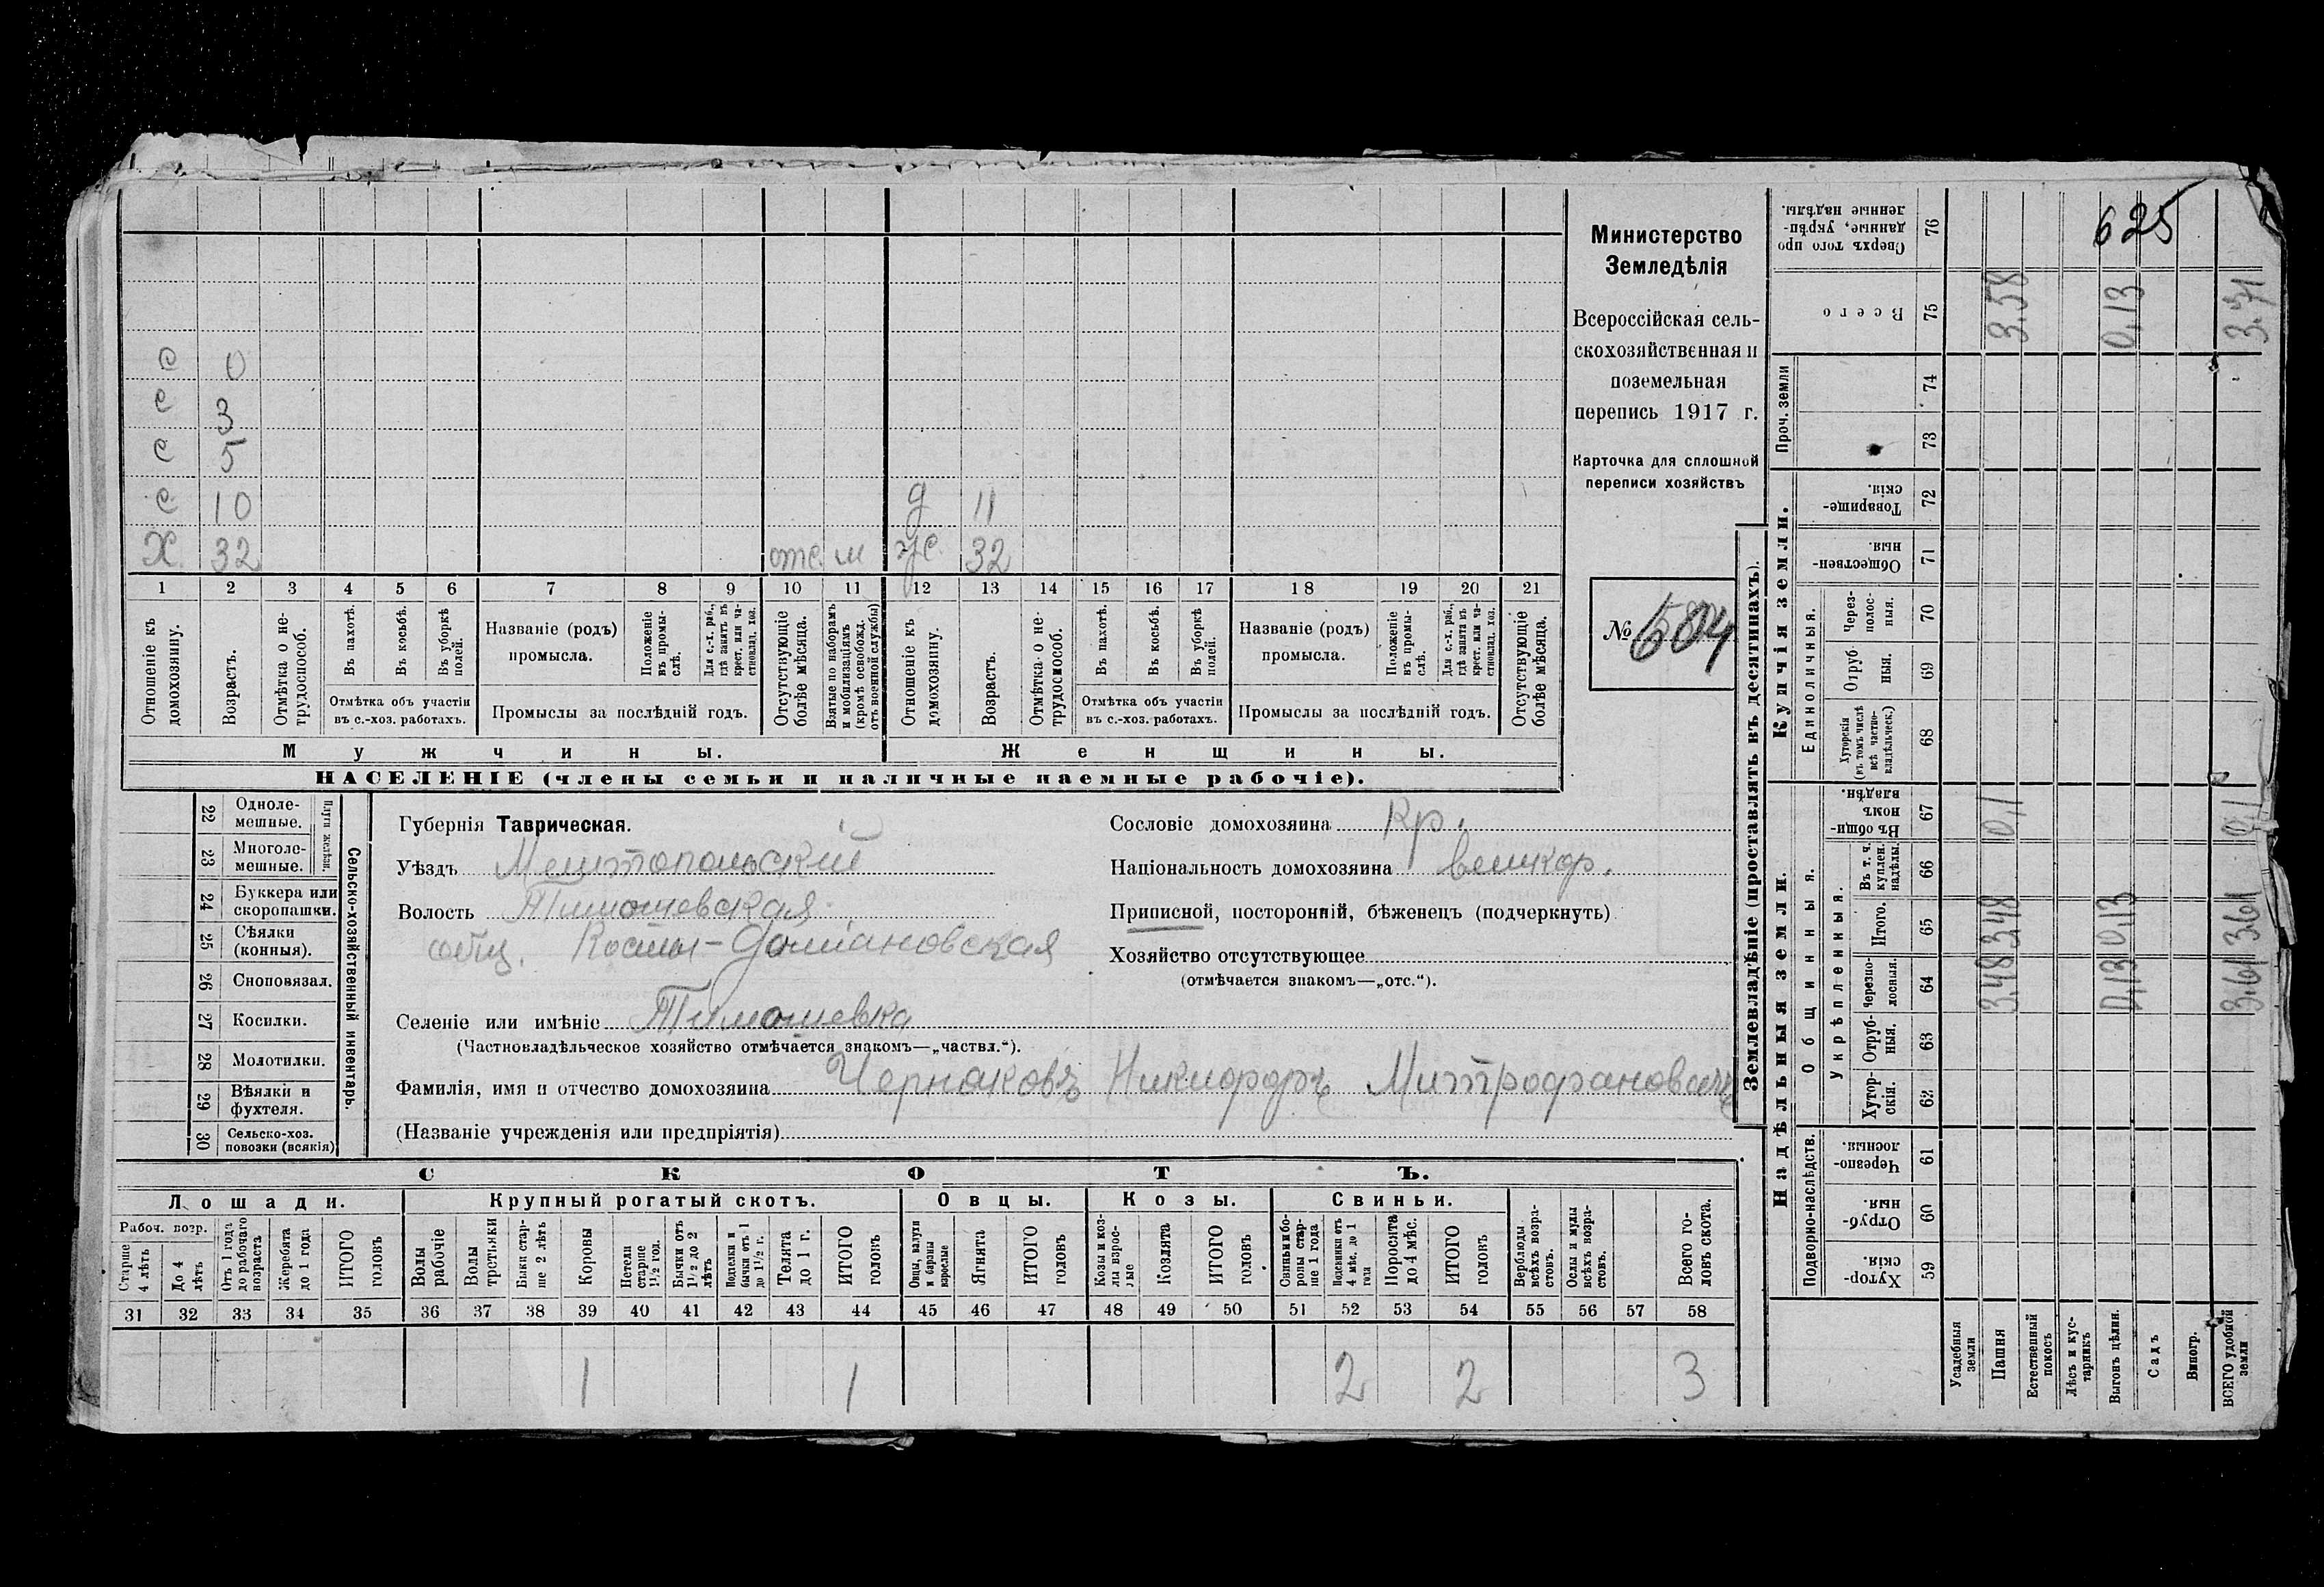 625
Министерство
Земледѣлія
Всероссійская сель-
скохозяйственная и
поземельная
перепись 1917 г.
Карточка для сплошной
переписи хозяйствъ
№ 504
С 0
С 3
С 5
С 10 д 11
Х. 32 отс. м ж. 32
1 2 3 4 5 6 7 8 9 10 11 12 13 14 15 16 17 18 19 20 21
Отношеніе къ домохозяину.
Возрастъ.
Отмѣтка о не-трудоспособ.
Въ пахотѣ.
Въ косьбѣ.
Въ уборкѣ полей.
Отмѣтка объ участіи въ с.-хоз. работахъ.
Названіе (родъ) промысла.
Положеніе въ промы-слѣ.
Для с.-х. раб., гдѣ занятъ въ крест. или ча-стновлад. хоз.
Промыслы за послѣдній годъ.
Отсутствующіе болѣе мѣсяца.
Взятые по наборамъ и мобилизаціямъ (кромѣ освобожд. отъ военной службы)
Отношеніе къ домохозяину.
Возрастъ.
Отмѣтка о не-трудоспособ.
Въ пахотѣ.
Въ косьбѣ.
Въ уборкѣ полей.
Отмѣтка объ участіи въ с.-хоз. работахъ.
Названіе (родъ) промысла.
Положеніе въ промы-слѣ.
Для с.-х. раб., гдѣ заняты въ крест. или ча-стновлад. хоз.
Промыслы за послѣдній годъ.
Отсутствующіе болѣе мѣсяца.
Мужчины. Женщины.
НАСЕЛЕНІЕ (члены семьи и наличные наемные рабочіе).
22 Одноле-мешные.
23 Многоле-мешные.
Плуги желѣзн.
24 Буккера или скоропашки.
25 Сѣялки (конныя).
26 Сноповязал.
27 Косилки.
28 Молотилки.
29 Вѣялки и фухтеля.
30 Сельско-хоз. повозки (всякія)
Сельско-хозяйственный инвентарь.
Губернія Таврическая.
Уѣздъ Мелитопольскій
Волость Тимошевская
общ. Косты-Даміановская
Селеніе или имѣніе Тимошевка
(Частновладѣльческое хозяйство отмѣчается знакомъ—„частвл.“).
Фамилія, имя и отчество домохозяина Черпаковъ Никифоръ Митрофановичъ
(Названіе учрежденія или предпріятія)
Сословіе домохозяина Кр.
Національность домохозяина великор.
Приписной, посторонній, бѣженецъ (подчеркнуть)
Хозяйство отсутствующее
(отмѣчается знакомъ—„отс.“).
СКОТЪ.
Лошади. Крупный рогатый скотъ. Овцы. Козы. Свиньи.
Рабоч. возр.
Старше 4 лѣтъ
До 4 лѣтъ
Отъ 1 года до рабочаго возраста
Жеребята до 1 года
ИТОГО головъ
Волы рабочіе
Волы третьяки
Быки стар-ше 2 лѣтъ
Коровы
Нетели старше 1½ год.
Бычки отъ 1½ до 2 лѣтъ
Подтелки и бычки отъ 1 до 1½ г.
Телята до 1 г.
ИТОГО головъ
Овцы, валухи и бараны взрослые
Ягнята
ИТОГО головъ
Козы и коз-лы взрос-лые
Козлята
ИТОГО головъ
Свиньи и бо-ровы стар-ше 1 года
Подсвинки отъ 4 мѣс. до 1 года
Поросята до 4 мѣс.
ИТОГО головъ
Верблюды всѣхъ возра-стовъ.
Ослы и мулы всѣхъ возра-стовъ.
Всего го-ловъ скота.
31 32 33 34 35 36 37 38 39 40 41 42 43 44 45 46 47 48 49 50 51 52 53 54 55 56 57 58
1 1 2 2 3
Землевладѣніе (проставлять въ десятинахъ).
Надѣльныя земли. Купчія земли. Проч. земли
Подворно-наслѣдств.
Общинныя.
Укрѣпленныя.
Единоличныя.
Хутор-скія. 59
Отруб-ныя 60
Черезпо-лосныя. 61
Хутор-скія. 62
Отруб-ныя. 63
Черезпо-лосныя. 64
Итого. 65
Въ т. ч. куплен. надѣлы. 66
Въ общи-номъ владѣн. 67
Хуторскія (въ томъ числѣ всѣ частно-владѣльческ.) 68
Отруб ныя. 69
Через-полос-ныя. 70
Обществен-ныя. 71
Товарище-скія. 72
73
74
Всего 75
Сверхъ того про данные, укрѣп-ленные надѣлы. 76
Усадебныя земли
Пашня 3.48 3.48 0,1 3.58
Естественный покосъ
Лѣсъ и кус-тарникъ
Выгонъ цѣлин. 0,13 0,13 0,13
Садъ
Виногр.
ВСЕГО удобной земли 3.61 3.61 0,1 3.71